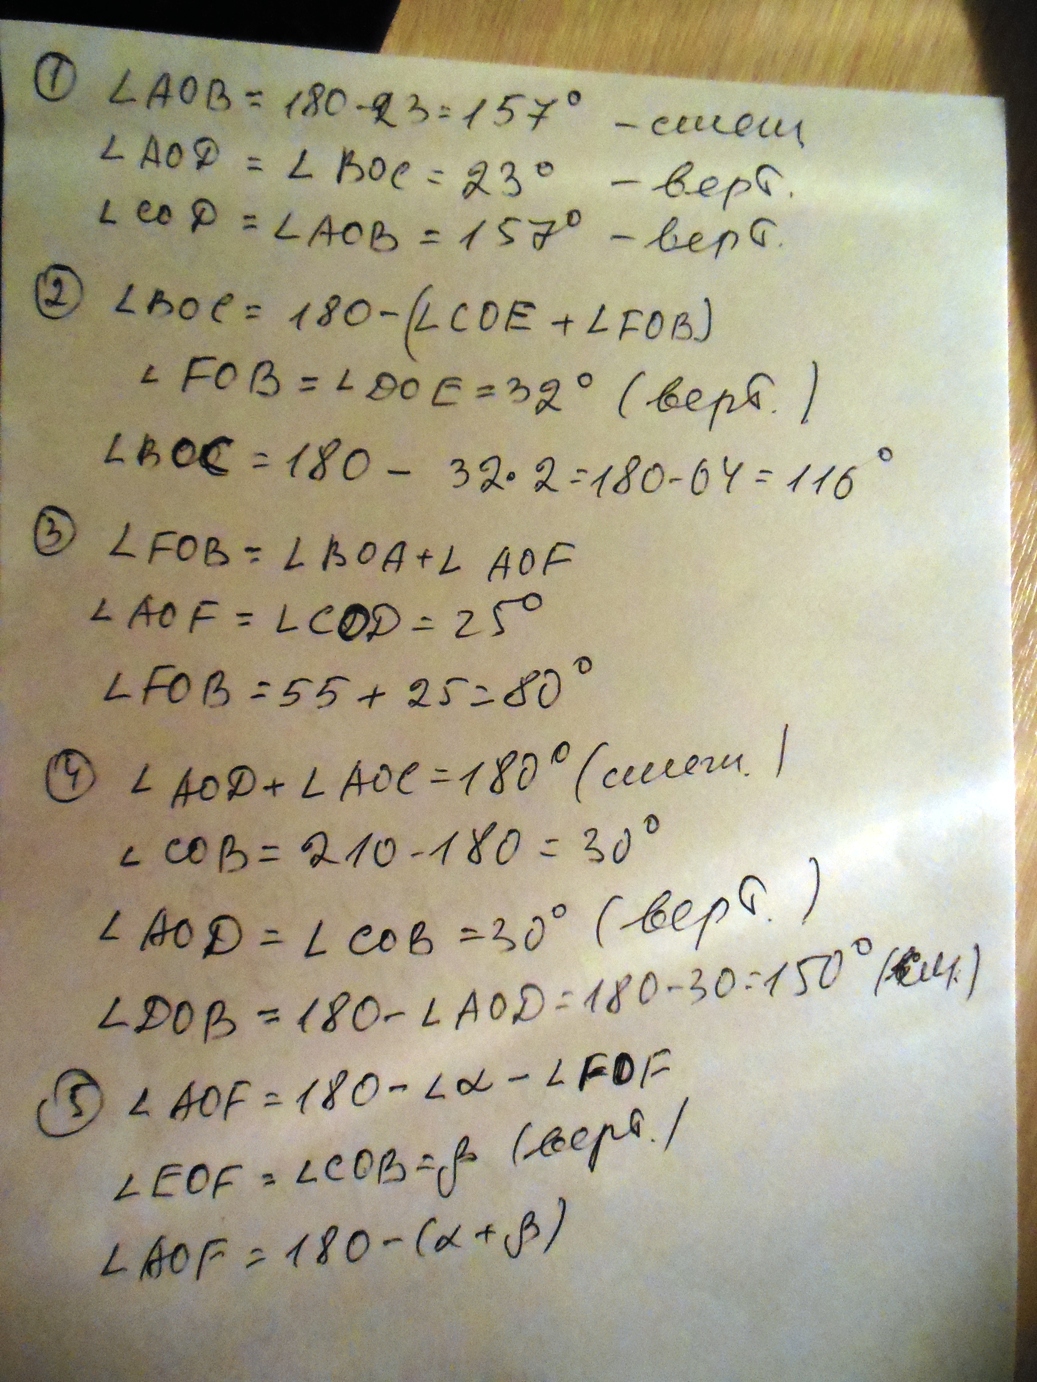 ① ∠AOB = 180-23=157° - смеш
∠AOD = ∠BOC = 23° - верт.
∠COD = ∠AOB = 157° - верт.
② ∠BOC = 180-(∠COE + ∠FOB)
∠FOB = ∠DOE = 32° (верт.)
∠BOC = 180 - 32·2=180-64=116°
③ ∠FOB = ∠BOA+∠AOF
∠AOF = ∠COD = 25°
∠FOB = 55 + 25=80°
④ ∠AOD+∠AOC=180° (смеж.)
∠COB = 210-180 = 30°
∠AOD = ∠COB = 30° (верт.)
∠DOB = 180-∠AOD=180-30=150° (см.)
⑤ ∠AOF = 180-∠α-∠FOF
∠EOF = ∠COB=β (верт.)
∠AOF = 180-(α+β)